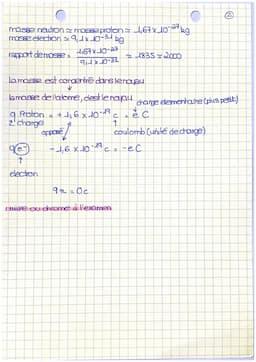 masse neutron ≈ masse proton ≈ 1,67 x 10⁻²⁷ kg
masse électron ≈ 9,1 x 10⁻³¹ kg
rapport de masse = 1,67 x 10⁻²⁷ / 9,1 x 10⁻³¹ ≈ 1835 ≈ 2000
La masse est concentré dans le noyau
la masse de l'atome, c'est le noyau
charge élémentaire (plus petit)
q Proton = + 1,6 x 10⁻¹⁹ C = e C
charge
opposé
coulomb (unité de charge)
q e⁻ - 1,6 x 10⁻¹⁹ C = - e C
électron
q n = 0 C